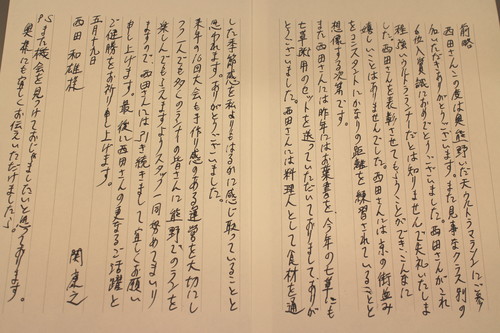 前略
西田さんこの度は奥熊野いだ天ウルトラマラソンにご参
加いただきありがとうございます。また見事なクラス別の
6位入賞誠におめでとうございました。西田さんがこれ
程強いウルトラランナーだとは知りませんで大失礼いたしま
した。西田さんを表彰させてもらうことができ、こんなに
嬉しいことはありませんでした。西田さんは京の街並み
をコンスタントにかなりの距離を練習されていることと
想像する次第です。
また西田さんには昨年にはお葉書を、今年の七草にも
七草採用のセットを送っていただいておりまして、ありが
とうございました。西田さんには料理人として食材を通
した季節感を私よりもはるかに感じ取っていることと
思われます。ありがとうございます。
来年の16回大会も手作り感のある運営を大切にし
つつ一人でも多くのランナーの皆さんに熊野でのランを
楽しんでもらえますようスタッフ一同努めてまいり
ますので、西田さんには引き続きまして宜しくお願い
申し上げます。最後に西田さんの更なるご活躍と
ご健勝をお祈り申し上げます。
五月十九日
西田和雄様
関康之
P.S また機会を見つけておじゃましたいと思っております。
奥様にも宜しくお伝えいただけましたら。